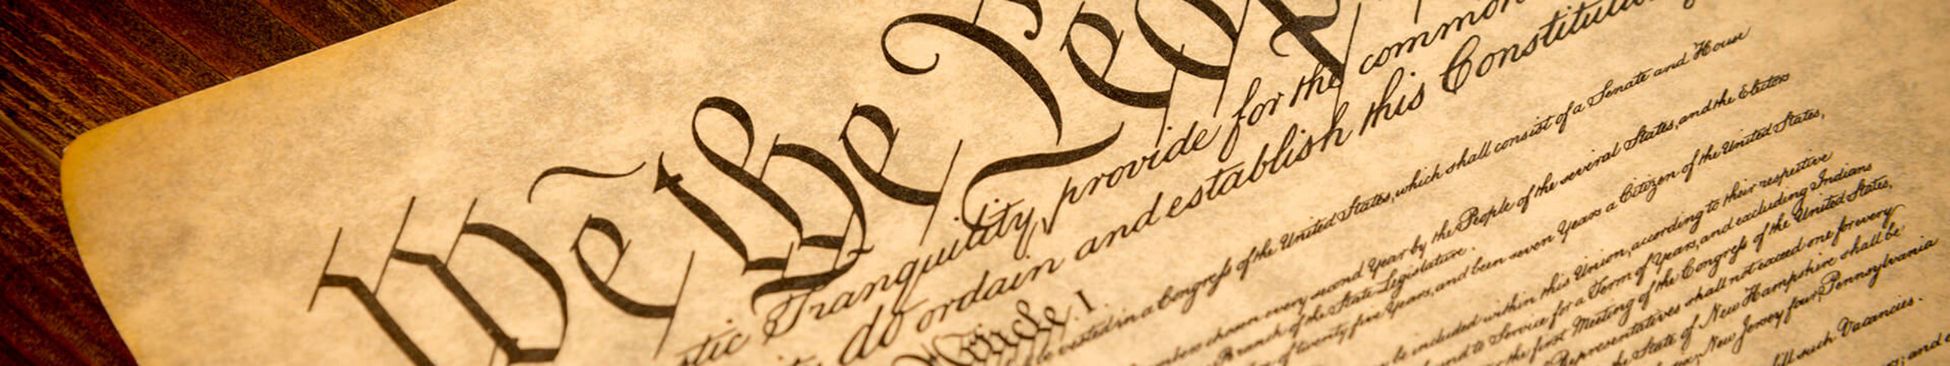 We the Peop
stic Tranquility, provide for the common
do ordain and establish this Constitution
Article. I
vested in a Congress of the United States, which shall consist of a Senate and House
chosen every second Year by the People of the several States, and the Electors
Branch of the State Legislature.
of twenty five Years, and been seven Years a Citizen of the United States,
be included within this Union, according to their respective
to Service for a Term of Years, and excluding Indians
the first Meeting of the Congress of the United States,
Representatives shall not exceed one for every
the State of New Hampshire shall be
New Jersey four Pennsylvania
such Vacancies.
and